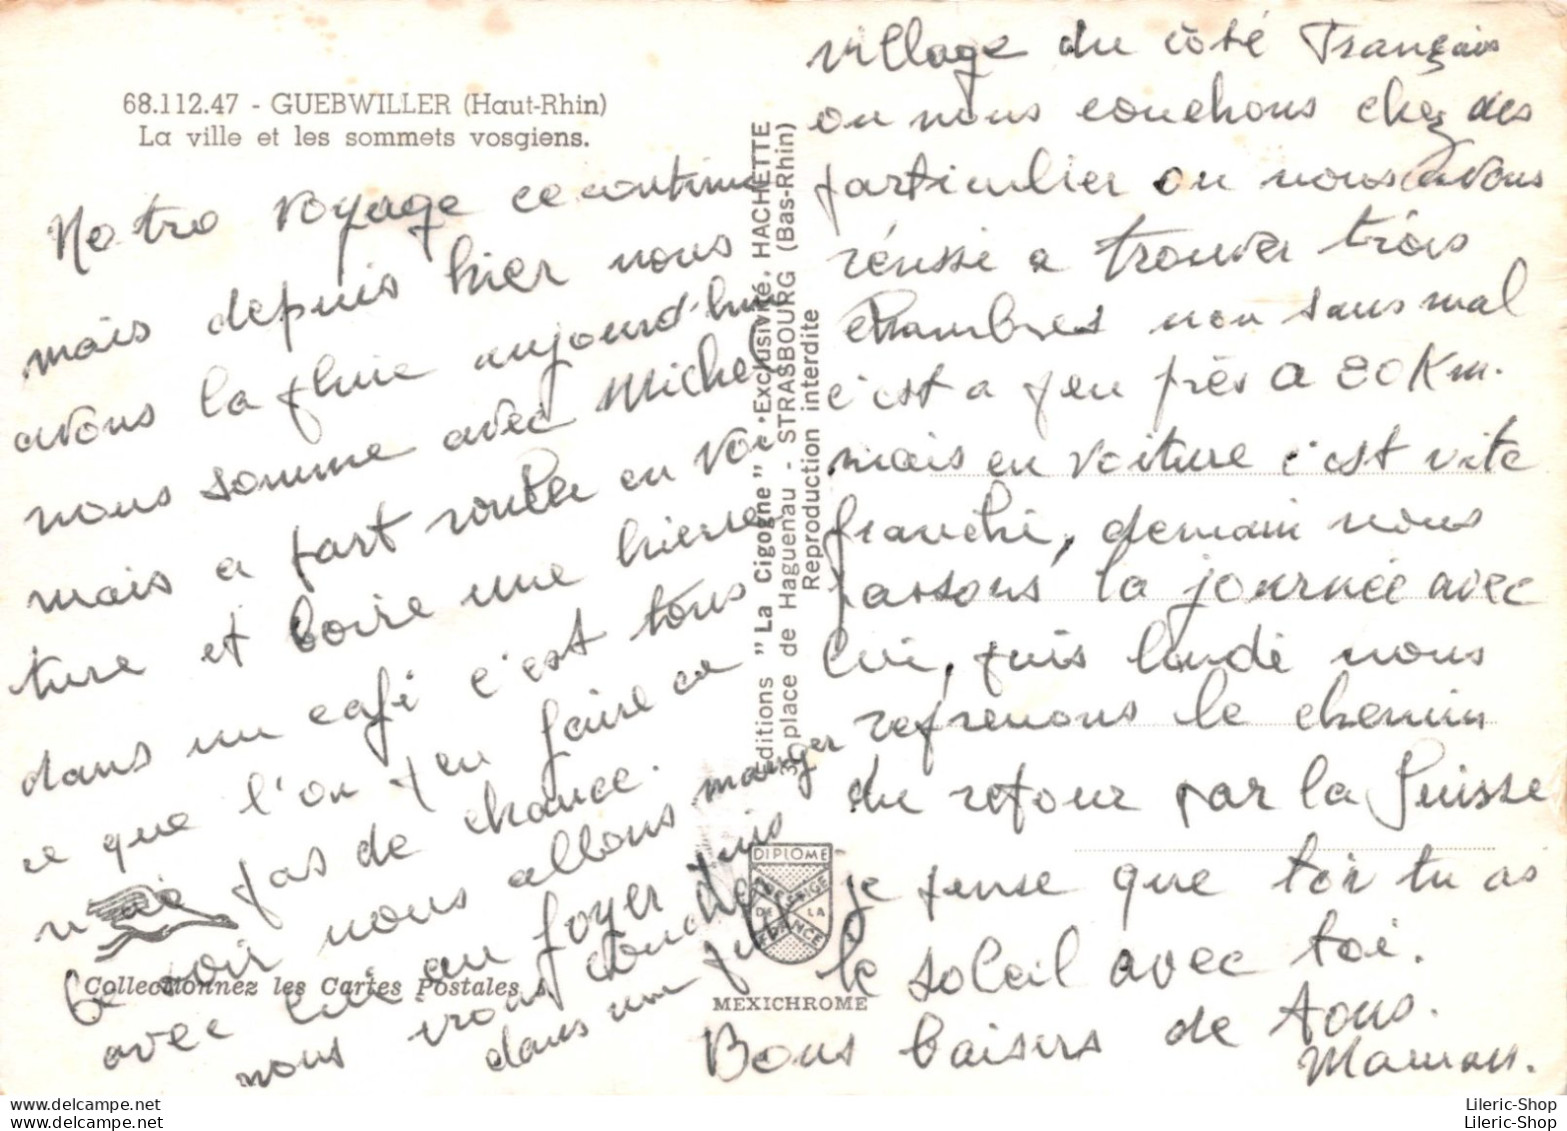 68.112.47 - GUEBWILLER (Haut-Rhin)
La ville et les sommets vosgiens.
Notre voyage ce continue
mais depuis hier nous
avons la pluie aujourd'hui
nous somme avec Michel
mais a part rouler en voi
ture et boire une bierre
dans un cafi c'est tous
ce que l'on peu faire ce
n'ai pas de chance.
Ce soir nous allons manger
avec lui au foyer puis
nous irons coucher
dans un
village du côté Français
ou nous couchons chez des
particulier ou nous avons
réussi a trouver trois
chambres non sans mal
c'est a peu près a 80 Km.
mais en voiture c'est vite
franchi, demain nous
passons la journée avec
lui, puis lundi nous
reprenons le chemin
du retour par la Suisse
je pense que toi tu as
le soleil avec toi.
Bons baisers de tous.
Maman.
Editions "La Cigogne" • Exclusivité. HACHETTE
place de Haguenau - STRASBOURG (Bas-Rhin)
Reproduction interdite
Collectionnez les Cartes Postales
DIPLOME
PRESTIGE
DE LA
FRANCE
MEXICHROME
Lileric-Shop
Lileric-Shop
www.delcampe.net
www.delcampe.net